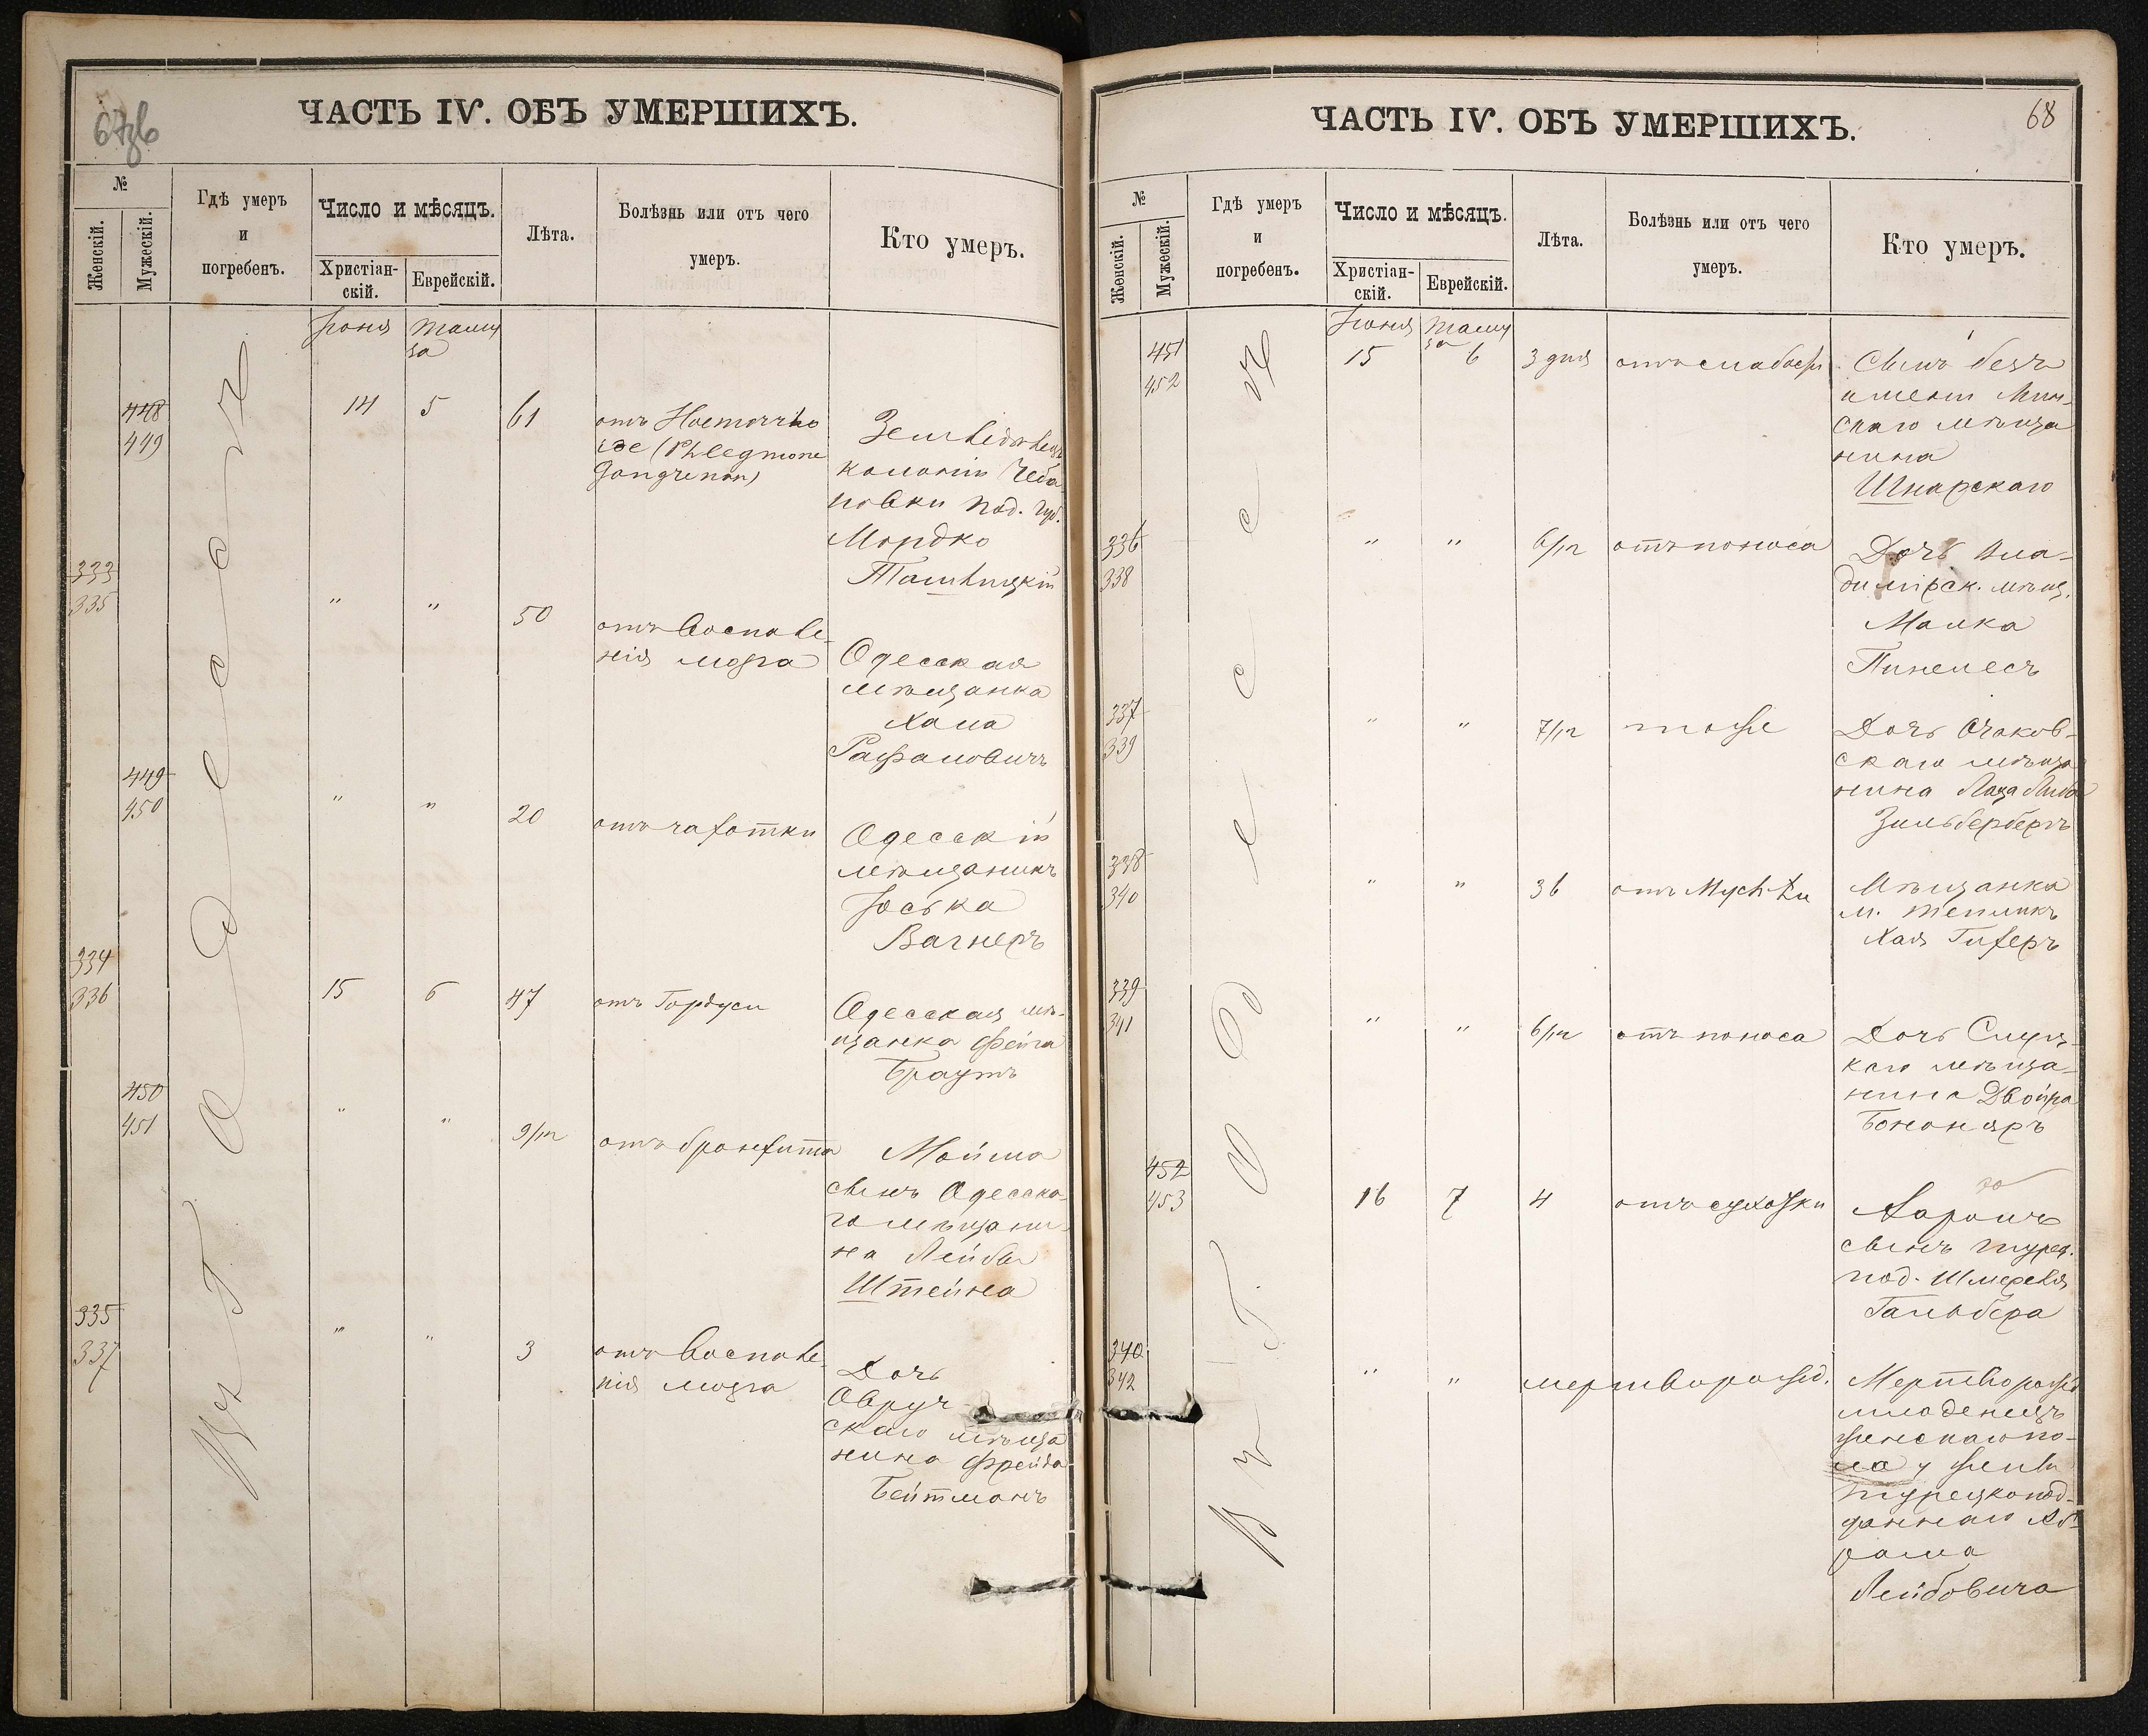 67 об
ЧАСТЬ IV. ОБЪ УМЕРШИХЪ.
№
Женскій.
Мужескій.
Гдѣ умеръ
и
погребенъ.
Число и мѣсяцъ.
Христіан-
скій.
Еврейскій.
Лѣта.
Болѣзнь или отъ чего
умеръ.
Кто умеръ.
Въ Г. Одессѣ
Іюня
Таму
за
448
449
14
5
61
отъ Haemorrho
ide (Phlegmone
Gangrenon)
Земледѣлецъ
колоніи Чеба
новки Под. Губ.
Мордко
Ташлицкій
333
335
"
"
50
отъ воспале-
нія мозга
Одесская
мѣщанка
Хана
Рафаловичъ
449
450
"
"
20
отъ чахотки
Одесскій
мѣщанинъ
Іоська
Вагнеръ
334
336
15
6
47
отъ
Одесская мѣ-
щанка Фейга
Браунъ
450
451
"
"
9/12
отъ бронхита
Мойша
сынъ Одесска-
го мѣщани-
на Лейбы
Штейна
335
337
"
"
3
отъ воспале-
нія мозга
Дочь
Овруч-
скаго мѣща
нина Фрейда
Бейтманъ
68
ЧАСТЬ IV. ОБЪ УМЕРШИХЪ.
№
Женскій.
Мужескій.
Гдѣ умеръ
и
погребенъ.
Число и мѣсяцъ.
Христіан-
скій.
Еврейскій.
Лѣта.
Болѣзнь или отъ чего
умеръ.
Кто умеръ.
Въ Г. Одессѣ
Іюня
Таму
за
451
452
15
6
3 дня
отъ слабости
Сынъ безъ
имени Мин-
скаго мѣща
нина
Шнарскаго
336
338
"
"
6/12
отъ поноса
Дочь Вла-
димірск. мѣщ.
Малка
Пинелесъ
337
339
"
"
7/12
тоже
Дочь Очаков-
скаго мѣща
нина Либа
Зильбербергъ
338
340
"
"
36
отъ
Мѣщанка
м. Тепликъ
Хая Гихеръ
339
341
"
"
6/12
отъ поноса
Дочь Слуц-
каго мѣща-
нина Двойра
452
453
16
7
4
отъ сухотки
Ааронъ
сынъ турец.
под. Шмереля
Гальбера
340
342
"
"
мертворожд.
Мертворожд
младенецъ
женскаго по-
ла у жены
турецкопод-
даннаго Аб-
рама
Лейбовича